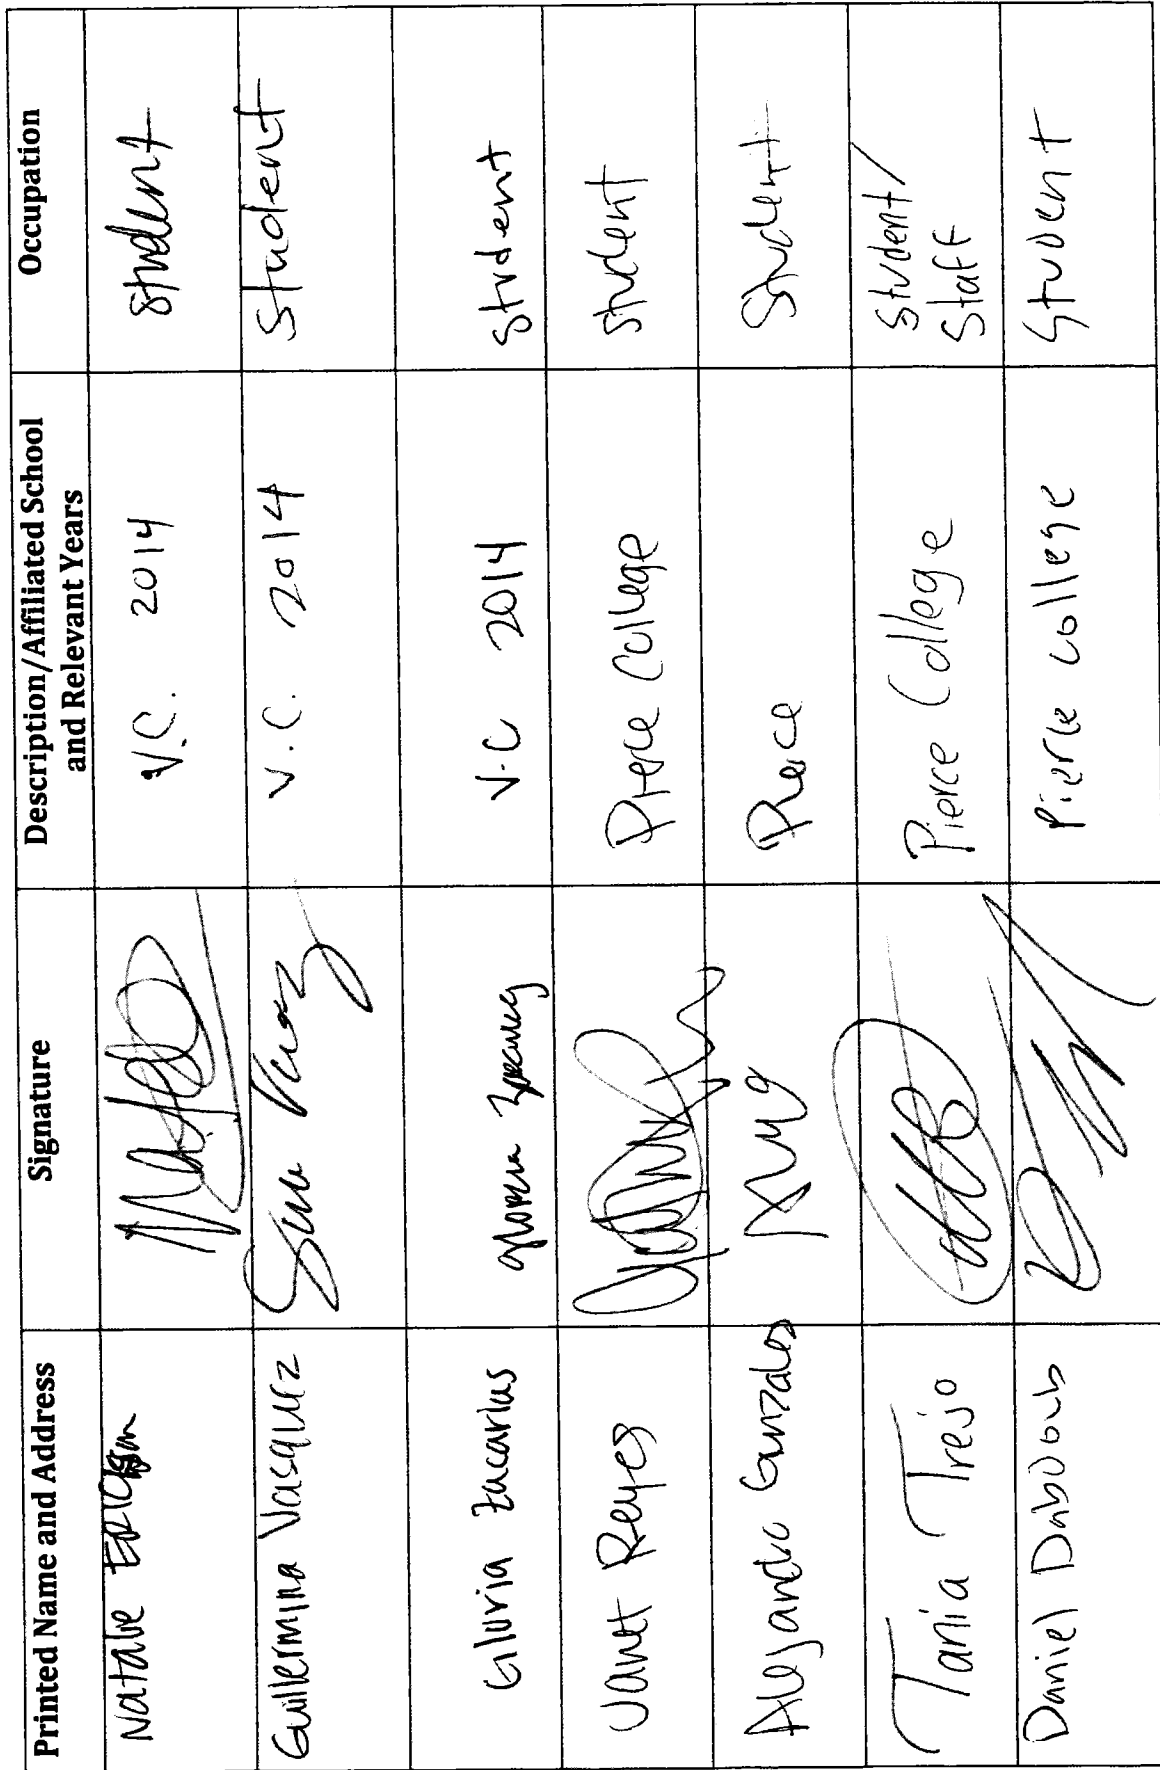 Printed Name and Address
Signature
Description/Affiliated School
and Relevant Years
Occupation
Natalie
V.C. 2014
student
Guillermina Vasquez
V.C. 2014
Student
Gloria Zacarias
V.C 2014
student
Janet Reyes
Pierce College
student
Alejandro Gonzales
Pierce
Student
Tania Trejo
Pierce College
Student/
Staff
Daniel Daboub
Pierce college
Student